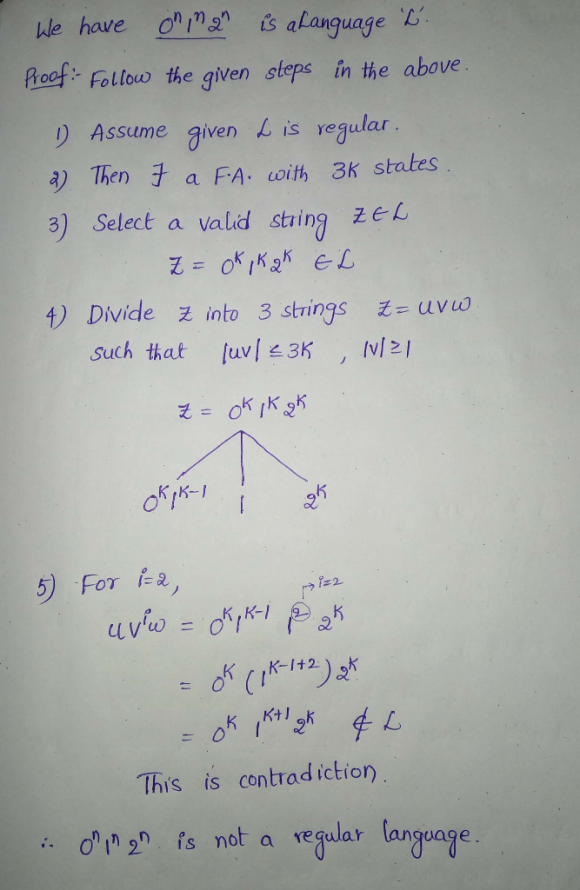 We have 0ⁿ1ⁿ2ⁿ is a Language 'L'.
Proof:- Follow the given steps in the above.
1) Assume given L is regular.
2) Then ∃ a F.A. with 3K states.
3) Select a valid string Z ∈ L
Z = 0ᴷ1ᴷ2ᴷ ∈ L
4) Divide Z into 3 strings Z = uvw
such that |uv| ≤ 3K , |v| ≥ 1
Z = 0ᴷ1ᴷ2ᴷ
0ᴷ1ᴷ⁻¹ 1 2ᴷ
5) For i=2,
→ i=2
uvⁱw = 0ᴷ1ᴷ⁻¹ 1² 2ᴷ
= 0ᴷ (1ᴷ⁻¹⁺²) 2ᴷ
= 0ᴷ 1ᴷ⁺¹ 2ᴷ ∉ L
This is contradiction.
∴ 0ⁿ1ⁿ2ⁿ is not a regular language.